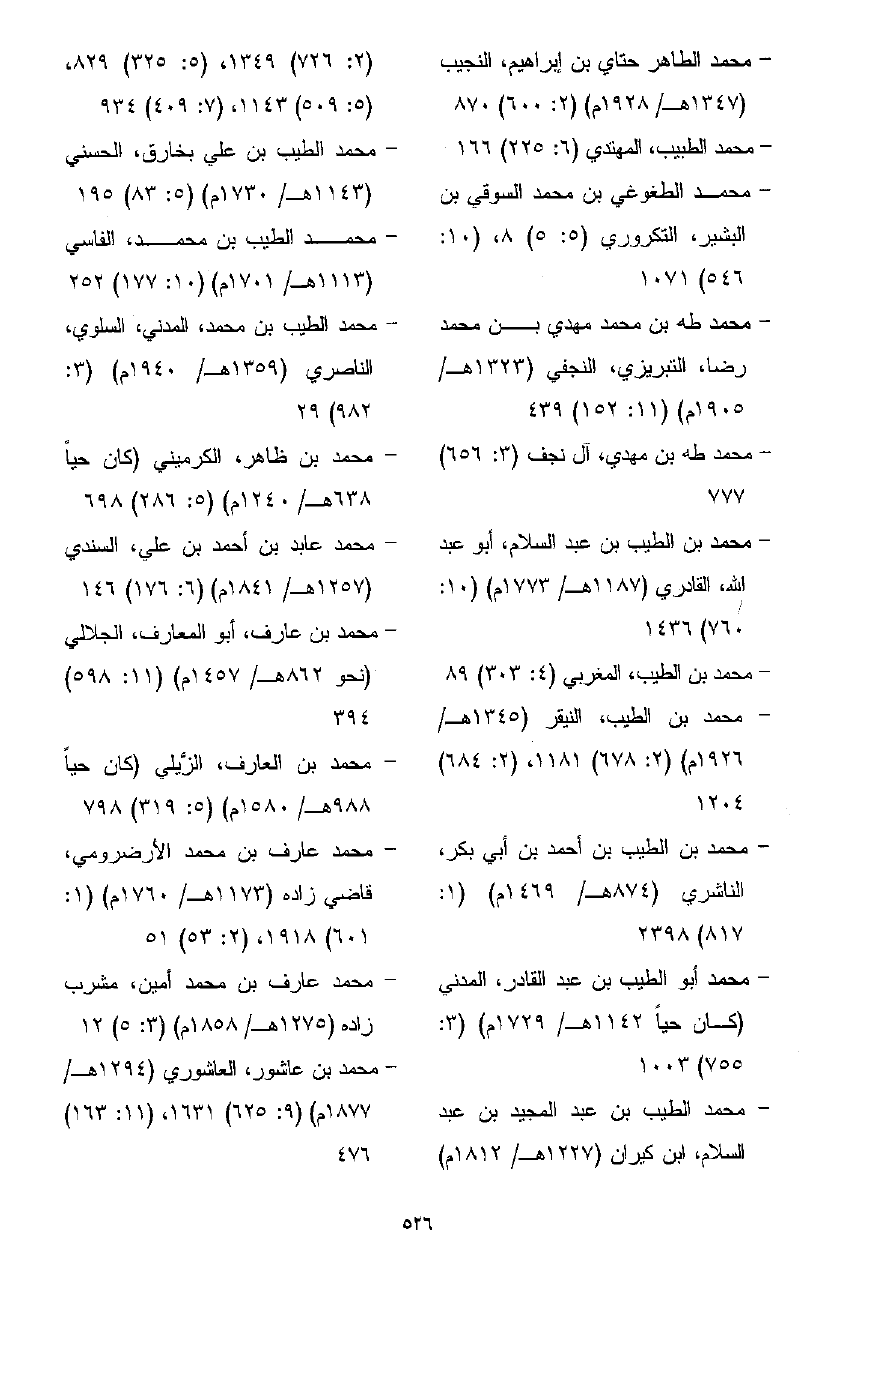 – محمد الطاهر حتاي بن إبراهيم، النجيب
(١٣٤٧هـ/ ١٩٢٨م) (٢: ٦٠٠) ٨٧٠
– محمد الطبيب، المهندي (٦: ٢٢٥) ١٦٦
– محمد الطغوغي بن محمد السوقي بن
البشير، التكروري (٥: ٥) ٨، (١٠:
٥٤٦) ١٠٧١
– محمد طه بن محمد مهدي بن محمد
رضا، التبريزي، النجفي (١٣٢٣هـ/
١٩٠٥م) (١١: ١٥٢) ٤٣٩
– محمد طه بن مهدي، آل نجف (٣: ٦٥٦)
٧٧٧
– محمد بن الطيب بن عبد السلام، أبو عبد
الله، القادري (١١٨٧هـ/ ١٧٧٣م) (١٠:
٧٦٠) ١٤٣٦
– محمد بن الطيب، المغربي (٤: ٣٠٣) ٨٩
– محمد بن الطيب، النيقر (١٣٤٥هـ/
١٩٢٦م) (٢: ٦٧٨) ١١٨١، (٢: ٦٨٤)
١٢٠٤
– محمد بن الطيب بن أحمد بن أبي بكر،
الناشري (٨٧٤هـ/ ١٤٦٩م) (١:
٨١٧) ٢٣٩٨
– محمد أبو الطيب بن عبد القادر، المدني
(كان حياً ١١٤٢هـ/ ١٧٢٩م) (٣:
٧٥٥) ١٠٠٣
– محمد الطيب بن عبد المجيد بن عبد
السلام، ابن كيران (١٢٢٧هـ/ ١٨١٢م)
(٢: ٧٢٦) ١٣٤٩، (٥: ٣٢٥) ٨٢٩،
(٥: ٥٠٩) ١١٤٣، (٧: ٤٠٩) ٩٣٤
– محمد الطيب بن علي بخارق، الحسني
(١١٤٣هـ/ ١٧٣٠م) (٥: ٨٣) ١٩٥
– محمد الطيب بن محمد، الفاسي
(١١١٣هـ/ ١٧٠١م) (١٠: ١٧٧) ٢٥٢
– محمد الطيب بن محمد، المدني، السلوي،
الناصري (١٣٥٩هـ/ ١٩٤٠م) (٣:
٩٨٢) ٢٩
– محمد بن ظاهر، الكرميني (كان حياً
٦٣٨هـ/ ١٢٤٠م) (٥: ٢٨٦) ٦٩٨
– محمد عابد بن أحمد بن علي، السندي
(١٢٥٧هـ/ ١٨٤١م) (٦: ١٧٦) ١٤٦
– محمد بن عارف، أبو المعارف، الجلالي
(نحو ٨٦٢هـ/ ١٤٥٧م) (١١: ٥٩٨)
٣٩٤
– محمد بن العارف، الزَّيلي (كان حياً
٩٨٨هـ/ ١٥٨٠م) (٥: ٣١٩) ٧٩٨
– محمد عارف بن محمد الأرضرومي،
قاضي زاده (١١٧٣هـ/ ١٧٦٠م) (١:
٦٠١) ١٩١٨، (٢: ٥٣) ٥١
– محمد عارف بن محمد أمين، مشرب
زاده (١٢٧٥هـ/ ١٨٥٨م) (٣: ٥) ١٢
– محمد بن عاشور، العاشوري (١٢٩٤هـ/
١٨٧٧م) (٩: ٦٢٥) ١٦٣١، (١١: ١٦٣)
٤٧٦
٥٢٦